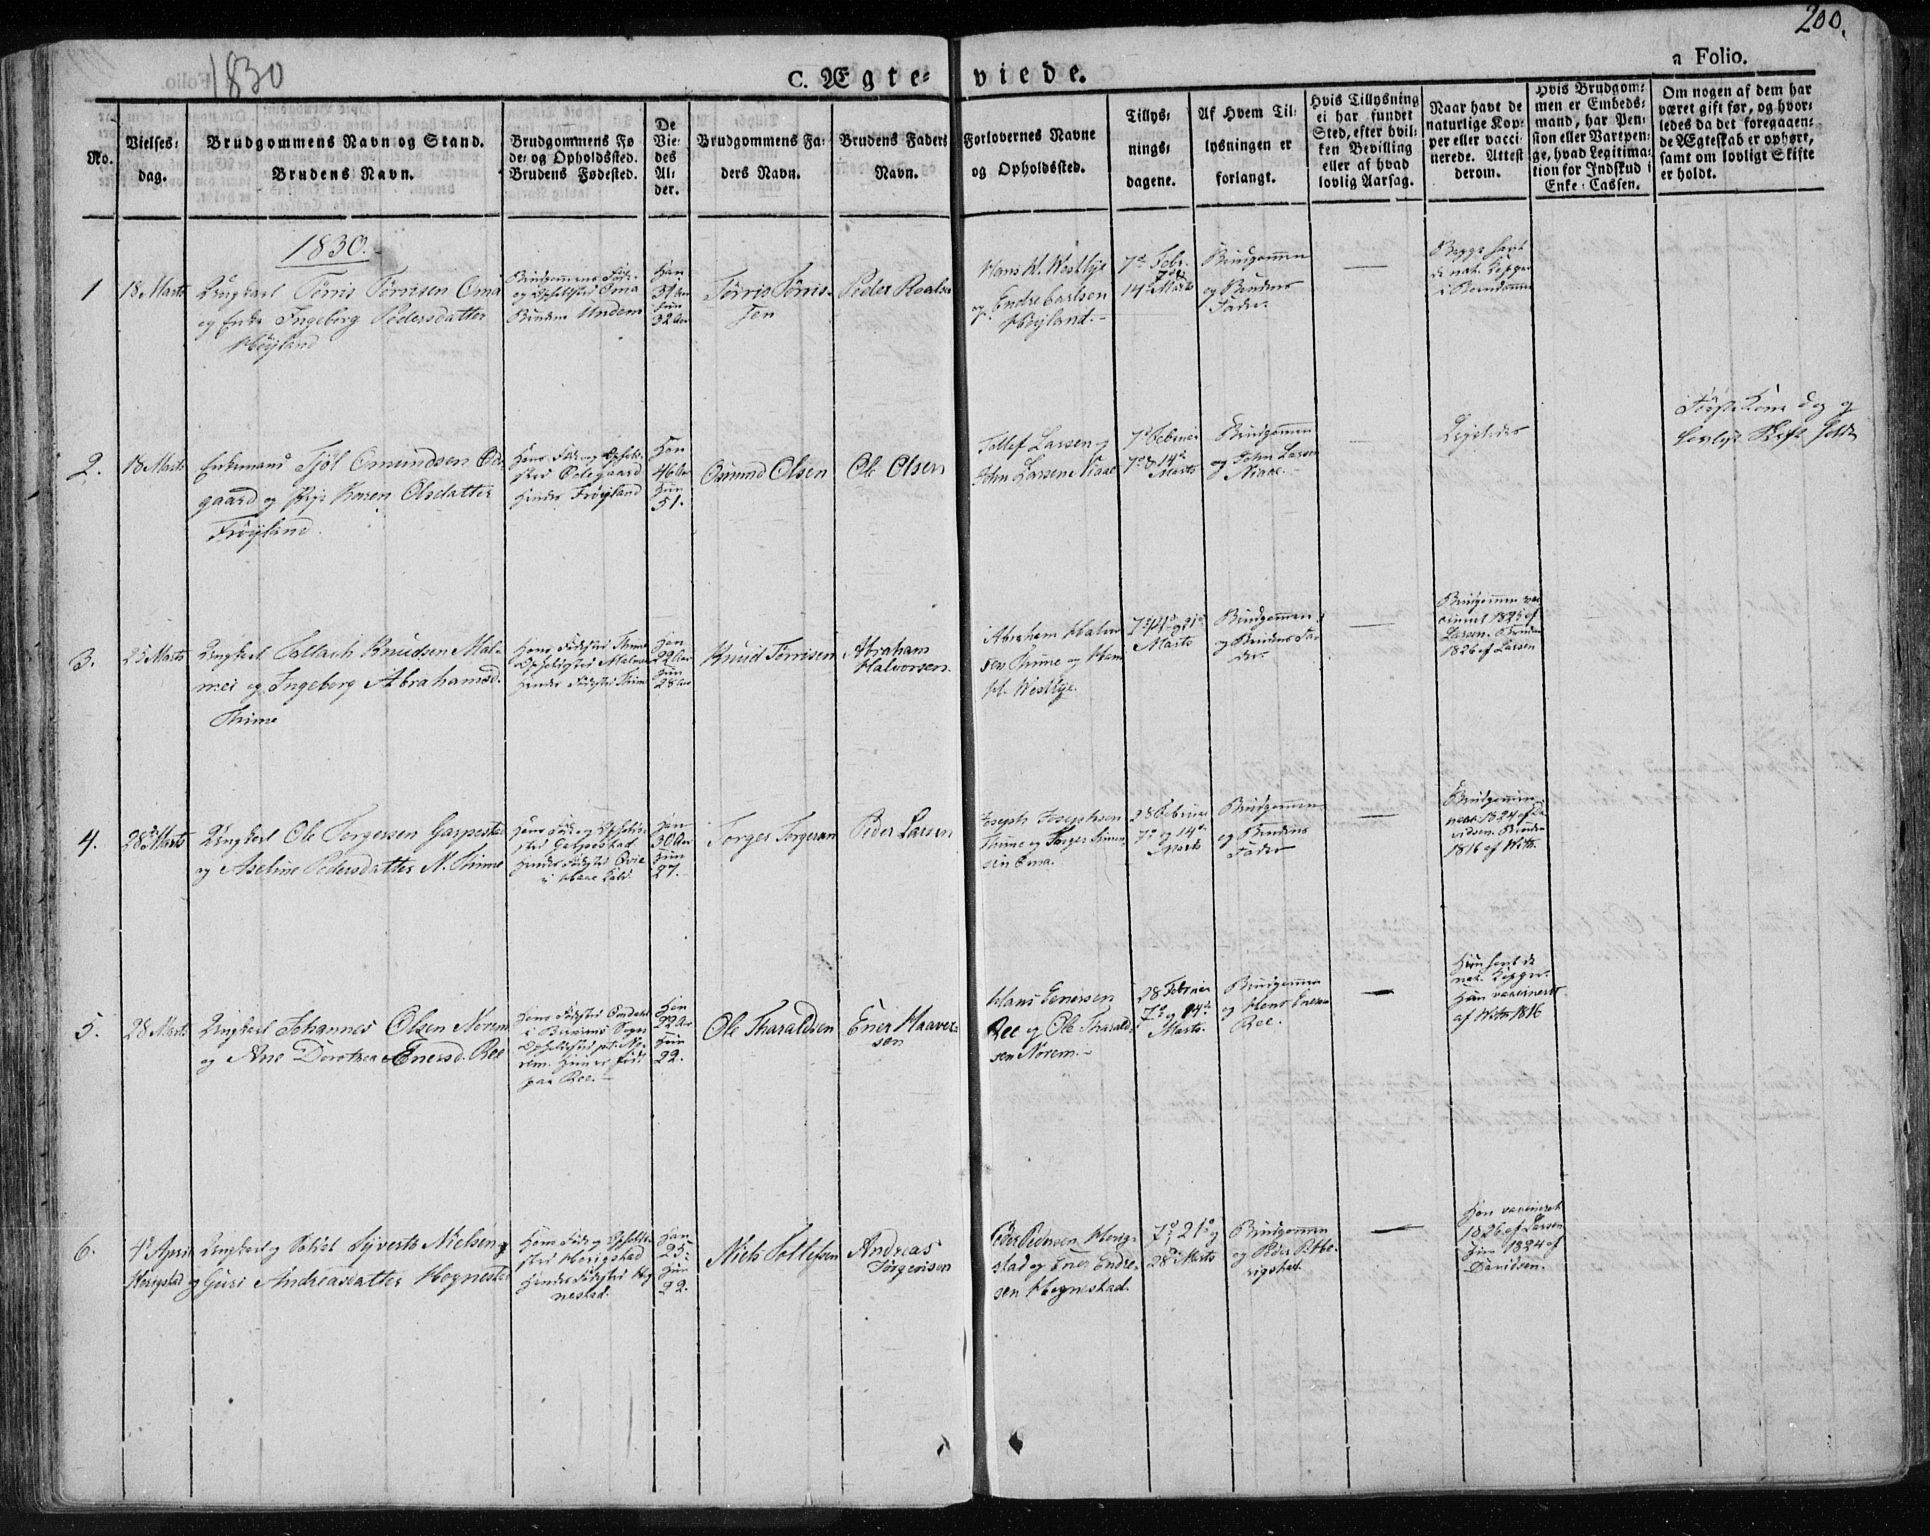 200.
1830
C. Ægte-viede.
a Folio.
No.
Vielses-
dag.
Brudgommens Navn og Stand.
Brudens Navn.
Brudgommens Fø
de- og Opholdssted.
Brudens Fødested.
De
Vie-
des
Al-
der.
Brudgommens Fa-
ders Navn.
Brudens Faders
Navn.
Forlovernes Navne
og Opholdssted.
Tillys-
nings-
dagene.
Af Hvem Til-
lysningen er
forlangt.
Hvis Tillysning
ei har fundet
Sted, efter hvil-
ken Bevilling
eller af hvad
lovlig Aarsag.
Naar havt de
naturlige Kop-
per eller vacci-
nerede. Attest
derom.
Hvis Brudgom-
men er Embeds-
mand, har Pen-
sion eller Vartpen-
ge, hvad Legitima-
tion for Indskud i
Enke-Cassen.
Om nogen af dem har
været gift før, og hvor-
ledes da det foregaaen-
de Ægteskab er ophørt,
samt om lovligt Skifte
er holdt.
1830.
1
18 Marts
Ungkarl Tørris Tørrisen Oma
og Enke Ingeborg Pedersdatter
Høyland
Brudgommens Føde-
og Opholdssted Oma
Brudens Undem
Han
31 Aar
Hun
32 Aar
Tørris Tørris-
sen
Peder Roalsen
Hans H. Westlye
og Endre Carlsen
Høyland.
7de Febr.
7de &
14de Marts
Brudgommen
og Brudens
Fader.
—
Begge havt
de nat. Kopper
i Barndommen
2.
18 Marts
Enkemand Tjøl Omundsen Øde-
gaard og Pige Karen Olsdatter
Frøyland.
Hans Føde- og Opholds-
sted Ødegaard
Hendes Frøyland
Han
46 Aar
Hun
51.
Omund Olsen
Ole Olsen
Tollef Larsen og
John Larsen Niaae
7de Februar
7de & 14de
Marts
Brudgommen
og John Larsen
Niaae.
—
Ligeledes
Første Kone død og
Lovligt Skifte holdt
3.
25 Marts
Ungkarl Tollach Knudsen Mal-
mei og Ingeborg Abrahamsd.
Thime
Hans Fødested Thime
Opholdssted Malmei
Hendes Fødested Thime
Han
22 Aar
Hun
28 Aar
Knud Tørrisen
Abraham
Halvorsen.
Abraham Halvor-
sen Thime og Hans
H. Westlye.
7de 14de og 21de
Marts
Brudgommen
og Brudens Fa-
der.
—
Brudgommen vac-
cineret 1825 af
Larsen. Bruden
1826 af Larsen
4.
28de Marts
Ungkarl Ole Torgersen Garpestad
og Aseline Pedersdatter N. Thime
Hans Føde- og Opholds-
sted Garpestad
Hendes Fødested Qvie
i Haae Sogn.
Han
30 Aar
Hun
27.
Torger Torgersen
Peder Larsen
Joseph Josephsen
Thime og Torger Simon-
sen Oma.
28 Februar
7de og 14de
Marts
Brudgommen
og Brudens
Fader
—
Brudgommen
vacc. 1824 af Da-
vidsen. Bruden
1816 af With.
5.
28 Marts
Ungkarl Johannes Olsen Norem
og Ane Dorothea Enersd. Ree
Han
22 Aar
Hun
22.
Ole Tharaldsen
Ener Haaver-
sen
Hans Enersen
Ree og Ole Tharald-
sen Norem.-
28 Februar
7de og 14de
Marts.
Brudgommen
og Hans Enersen
Ree.
—
Han havt de
nat. Kopper.
Hun vaccineret
af With 1816
6.
4de April
Horpestad
Ungkarl og Soldat Syvert Nielsen
og Guri Andreasdatter Hognestad
Hans Føde- og Opholds-
sted Horpestad
Hendes Fødested Hog
nestad.
Han
25.
Hun
22.
Niels Tollefsen
Andreas
Jørgensen
Peder Pedersen Horpe-
stad og Ener Endre-
sen Hognestad.
7de 21de og
28de Marts
Brudgommen
og Peder P. Ho-
rpestad.
—
Han vaccineret
1826 af Larsen
Hun 1824 af
Davidsen.